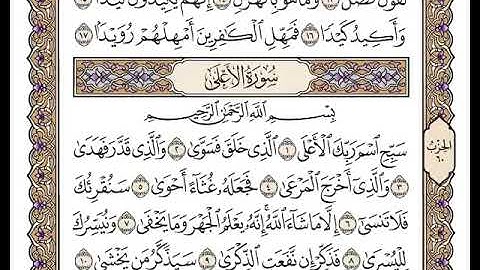 لَقَوْلٌ فَصْلٌ ١٣ وَمَا هُوَ بِالْهَزْلِ ١٤ إِنَّهُمْ يَكِيدُونَ كَيْدًا ١٥
وَأَكِيدُ كَيْدًا ١٦ فَمَهِّلِ الْكَافِرِينَ أَمْهِلْهُمْ رُوَيْدًا ١٧
سُورَةُ الْأَعْلَى
بِسْمِ اللَّهِ الرَّحْمَٰنِ الرَّحِيمِ
سَبِّحِ اسْمَ رَبِّكَ الْأَعْلَى ١ الَّذِي خَلَقَ فَسَوَّىٰ ٢ وَالَّذِي قَدَّرَ فَهَدَىٰ
٣ وَالَّذِي أَخْرَجَ الْمَرْعَىٰ ٤ فَجَعَلَهُ غُثَاءً أَحْوَىٰ ٥ سَنُقْرِئُكَ
فَلَا تَنسَىٰ ٦ إِلَّا مَا شَاءَ اللَّهُ إِنَّهُ يَعْلَمُ الْجَهْرَ وَمَا يَخْفَىٰ ٧ وَنُيَسِّرُكَ
لِلْيُسْرَىٰ ٨ فَذَكِّرْ إِن نَّفَعَتِ الذِّكْرَىٰ ٩ سَيَذَّكَّرُ مَن يَخْشَىٰ ١٠
الحزب
٦٠